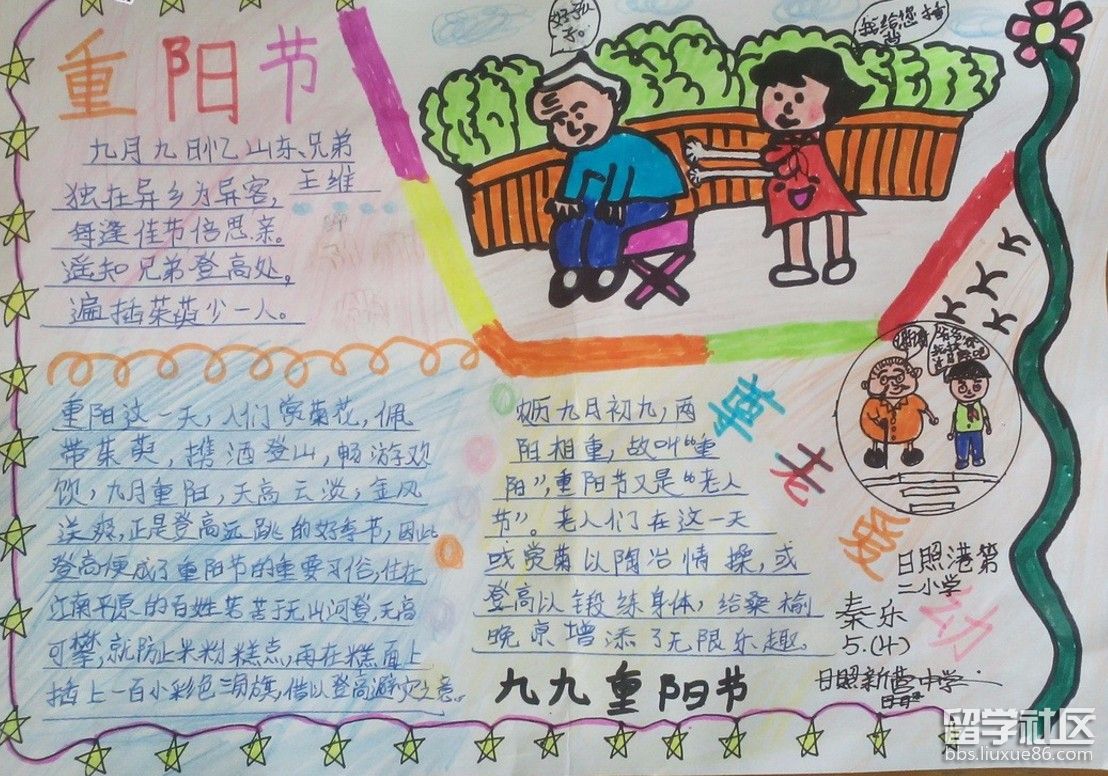 重阳节
九月九日忆山东兄弟
王维
独在异乡为异客,
每逢佳节倍思亲。
遥知兄弟登高处,
遍插茱萸少一人。
好孩子。
我给您捶背
重阳这一天,人们赏菊花,佩
带茱萸,携酒登山,畅游欢
饮,九月重阳,天高云淡,金风
送爽,正是登高远跳的好季节,因此
登高便成了重阳节的重要习俗,住在
江南平原的百姓苦于无山河登,无高
可攀,就防止米粉糕点,再在糕面上
插上一百小彩色三角旗,借以登高避灾之意。
九月初九,两
阳相重,故叫“重
阳”,重阳节又是“老人
节”。老人们在这一天
或赏菊以陶冶情操,或
登高以锻练身体,给桑榆
晚京增添了无限乐趣。
九九重阳节
尊老爱幼
谢谢
日照港第
二小学
秦乐
5.(4)
日照新营中学
留学社区
bbs.liuxue86.com